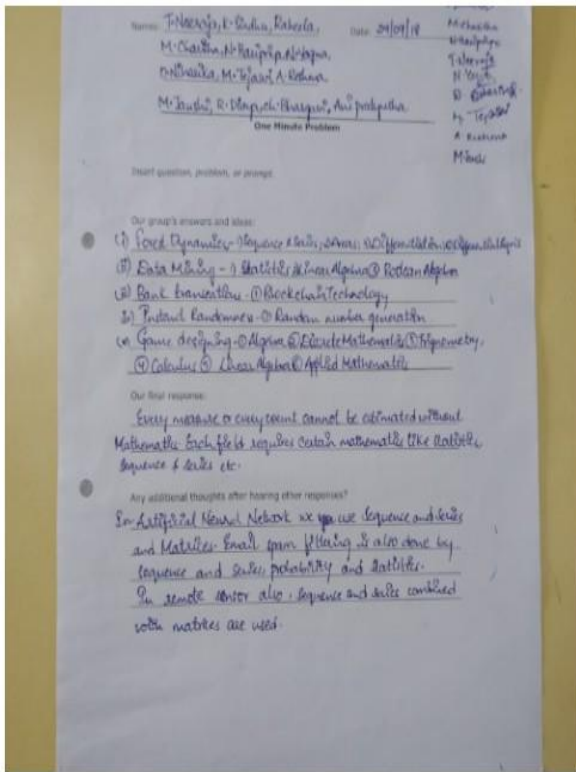 Names: T. Neeraja, K. Sindhu, Raheela, Date: 29/09/18
M. Charitha, N. Haripriya,
O. Niharika, M. Tejasri, A. Roshna
M. Jaushi, R. Dilep, ch. Bhargavi,
One Minute Problem
Insert question, problem, or prompt.
Our group's answers and ideas:
(i) Dynamics - 1) Sequence & Series, 2) Areas 3) Differentiation
(ii) Data Mining - 1) Statistics 2) Linear Algebra 3) Boolean Algebra
(iii) Bank transactions - ① Blockchain Technology
iv) Instant Randomness - ① Random number generation
(v) Game designing - ① Algebra ② Discrete Mathematics ③ Trignometry,
④ Calculus ⑤ Linear Algebra ⑥ Applied Mathematics
Our final response:
Every measure or every count cannot be estimated without
Mathematics. Each field requires certain mathematics like statistics,
sequence & series etc.
Any additional thoughts after hearing other responses?
In Artificial Neural Network we use sequence and series
and Matrices. Email spam filtering is also done by
sequence and series, probability and statistics.
In remote sensor also, sequence and series combined
with matrices are used.